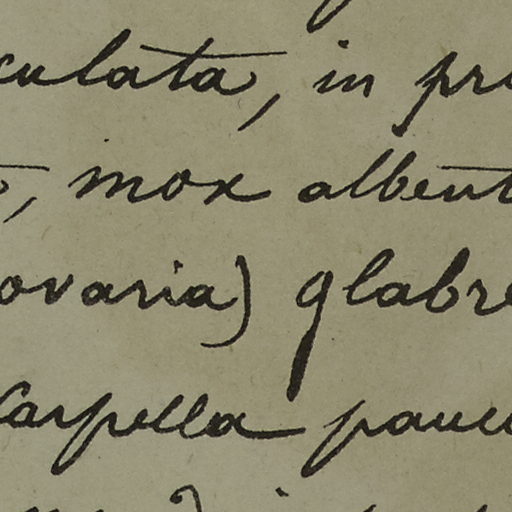 culata, in pr
, mox albent
ovaria) glabre
Carpella pauc